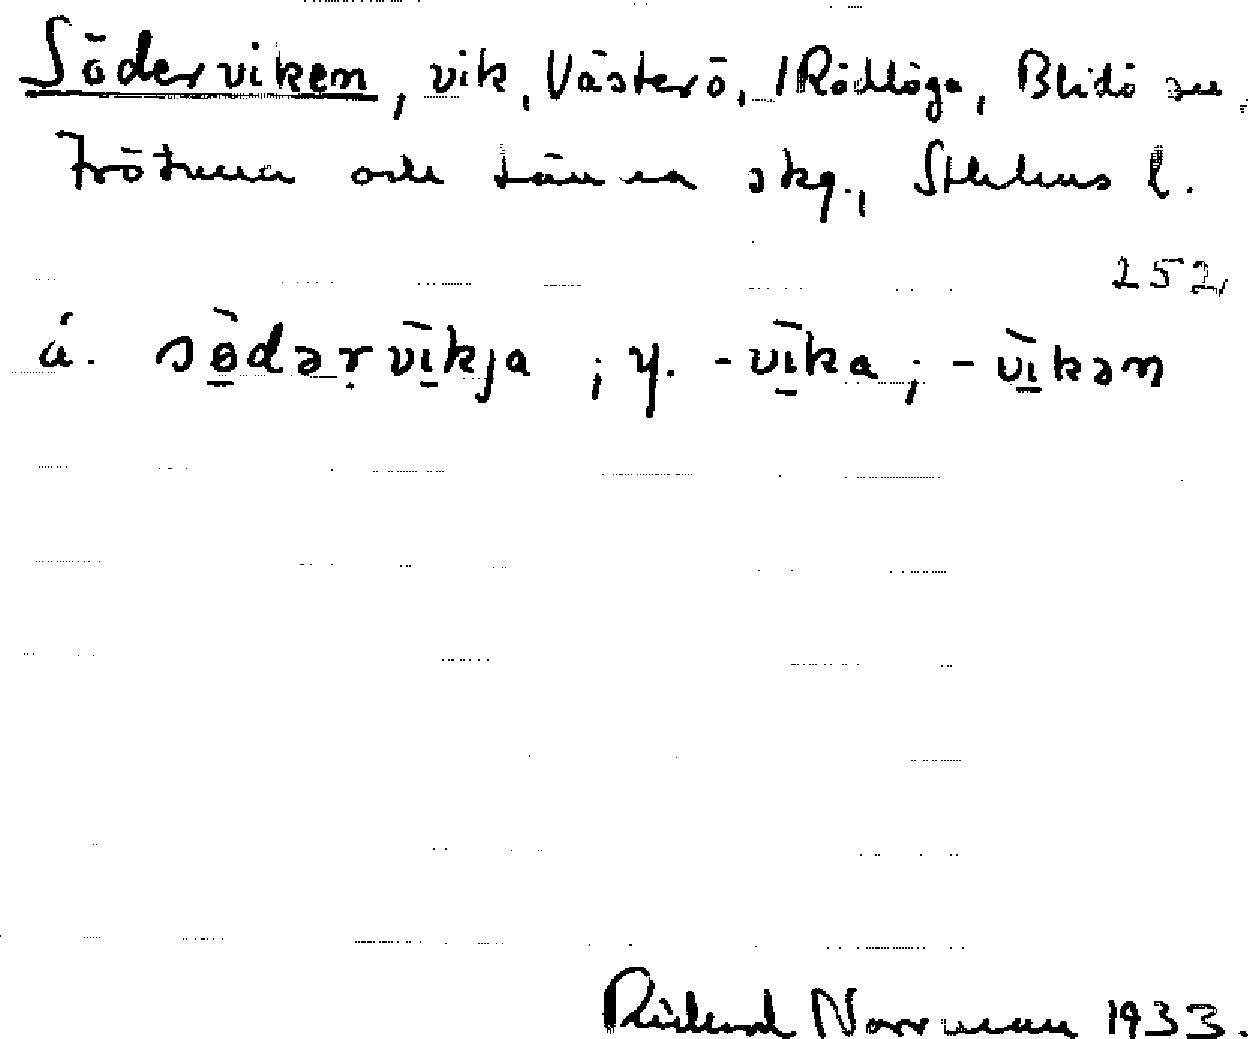 Söderviken, vik, Västerö, /Rödlöga, Blidö sn,
Frötuna och Länna skg., Sthlms l.
252,
ä. södərvikja ; y. -vika ; -vikən
Rickard Norrman 1933.